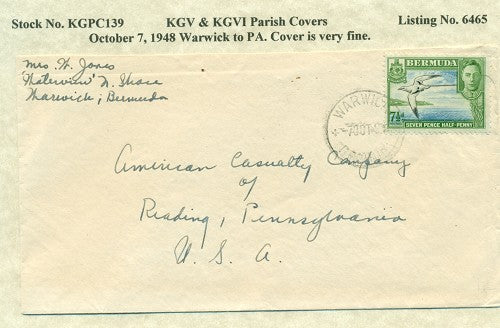 Stock No. KGPC139 KGV & KGVI Parish Covers Listing No. 6465
October 7, 1948 Warwick to PA. Cover is very fine.
Mrs. H. Jones
"Waterview" N. Shore
Warwick, Bermuda
BERMUDA
7½d
SEVEN PENCE HALF-PENNY
WARWICK
American Casualty Company
of
Reading, Pennsylvania
U. S. A.